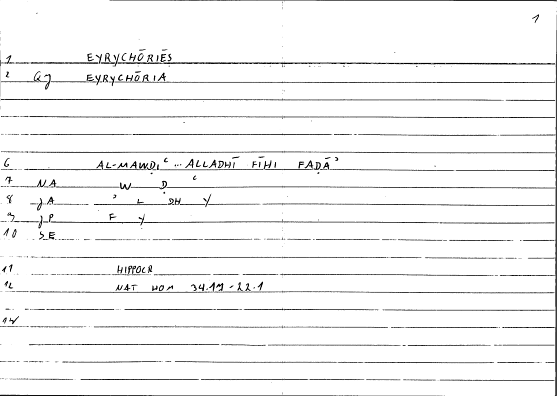 1
1 EYRYCHŌRIĒS
2 QJ EYRYCHŌRIA
6 AL-MAWḌIʿ ... ALLADHĪ FĪHI FAḌĀʾ
7 NA W Ḍ ʿ
8 JA ʾ L DH Y
9 JP F Y
10 SE
11 HIPPOCR
12 NAT HOM 34.19-22.1
14